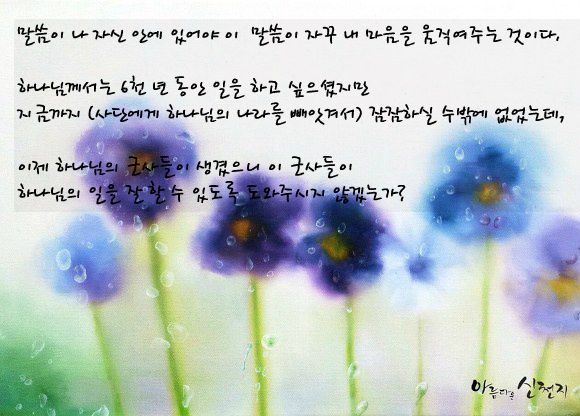 말씀이 나 자신 안에 있어야 이 말씀이 자꾸 내 마음을 움직여주는 것이다.
하나님께서는 6천 년 동안 일을 하고 싶으셨지만
지금까지 (사단에게 하나님의 나라를 빼앗겨서) 잠잠하실 수밖에 없었는데,
이제 하나님의 군사들이 생겼으니 이 군사들이
하나님의 일을 잘 할 수 있도록 도와주시지 않겠는가?
아름다운 신천지